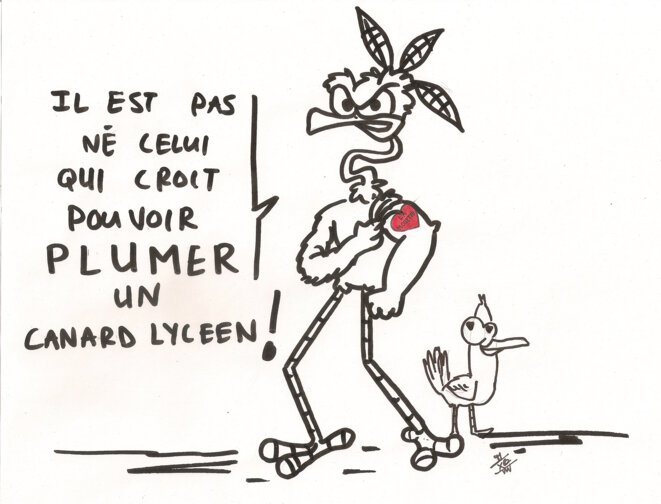 IL EST PAS
NÉ CELUI
QUI CROIT
POUVOIR
PLUMER
UN
CANARD LYCEEN !